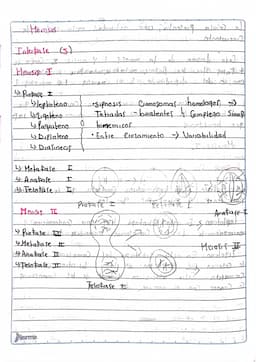 Meiosis
Interfase (S)
Meiosis I
↳ Profase I
↳ leptoteno • sipnosis Cromosomas homologos →
↳ Zigoteno Tetradas - bivalentes } Complejo Sinap
↳ Paquiteno
↳ Diploteno • Entre Cruzamiento → Variabilidad
↳ Diacinecis
↳ Metafase I
↳ Anafase I
↳ Telofase I
Profase I
Anafase I
Meiosis II
↳ Profase II
↳ Metafase II
↳ Anafase II
↳ Telofase II
Meiosis II
Telofase II
Norma